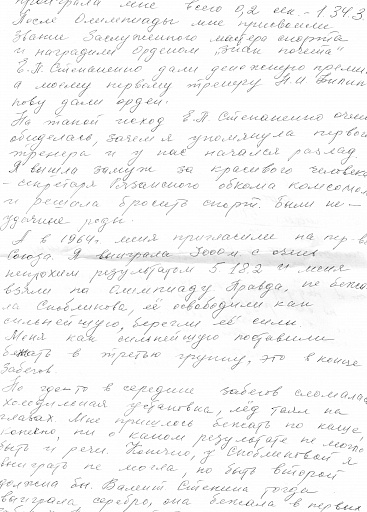 проиграла мне всего 0,2 сек. - 1.34.3
После Олимпиады мне присвоили
звание Заслуженного мастера спорта
и наградили Орденом "Знак почета"
Е.П. Степаненко дали денежную премию
а моему первому тренеру Н.И.
пову дали орден.
На такой исход Е.П. Степаненко очень
обиделась, зачем я упомянула первого
тренера и у нас начался разлад
Я вышла замуж за красивого человека
- секретаря Рязанского обкома комсомола
и решила бросить спорт. Были не-
удачные роды.
А в 1964г. меня пригласили на пер-во
Союза. Я выиграла 3000м с очень
неплохим результатом 5.18.2 и меня
взяли на Олимпиаду. Правда, не бежа-
ла Скобликова, её освободили как
сильнейшую, берегли её силы.
Меня как сильнейшую поставили
бежать в третью группу, это в конце
забегов.
Но где-то в середине забегов сломалась
холодильная установка, лёд таял на
глазах. Мне пришлось бежать по каше
конечно, ни о каком результате не могло
быть и речи. Конечно, у Скобликовой я
выиграть не могла, но быть второй
должна бы. Валент. Стенина тогда
выиграла серебро, она бежала в первых